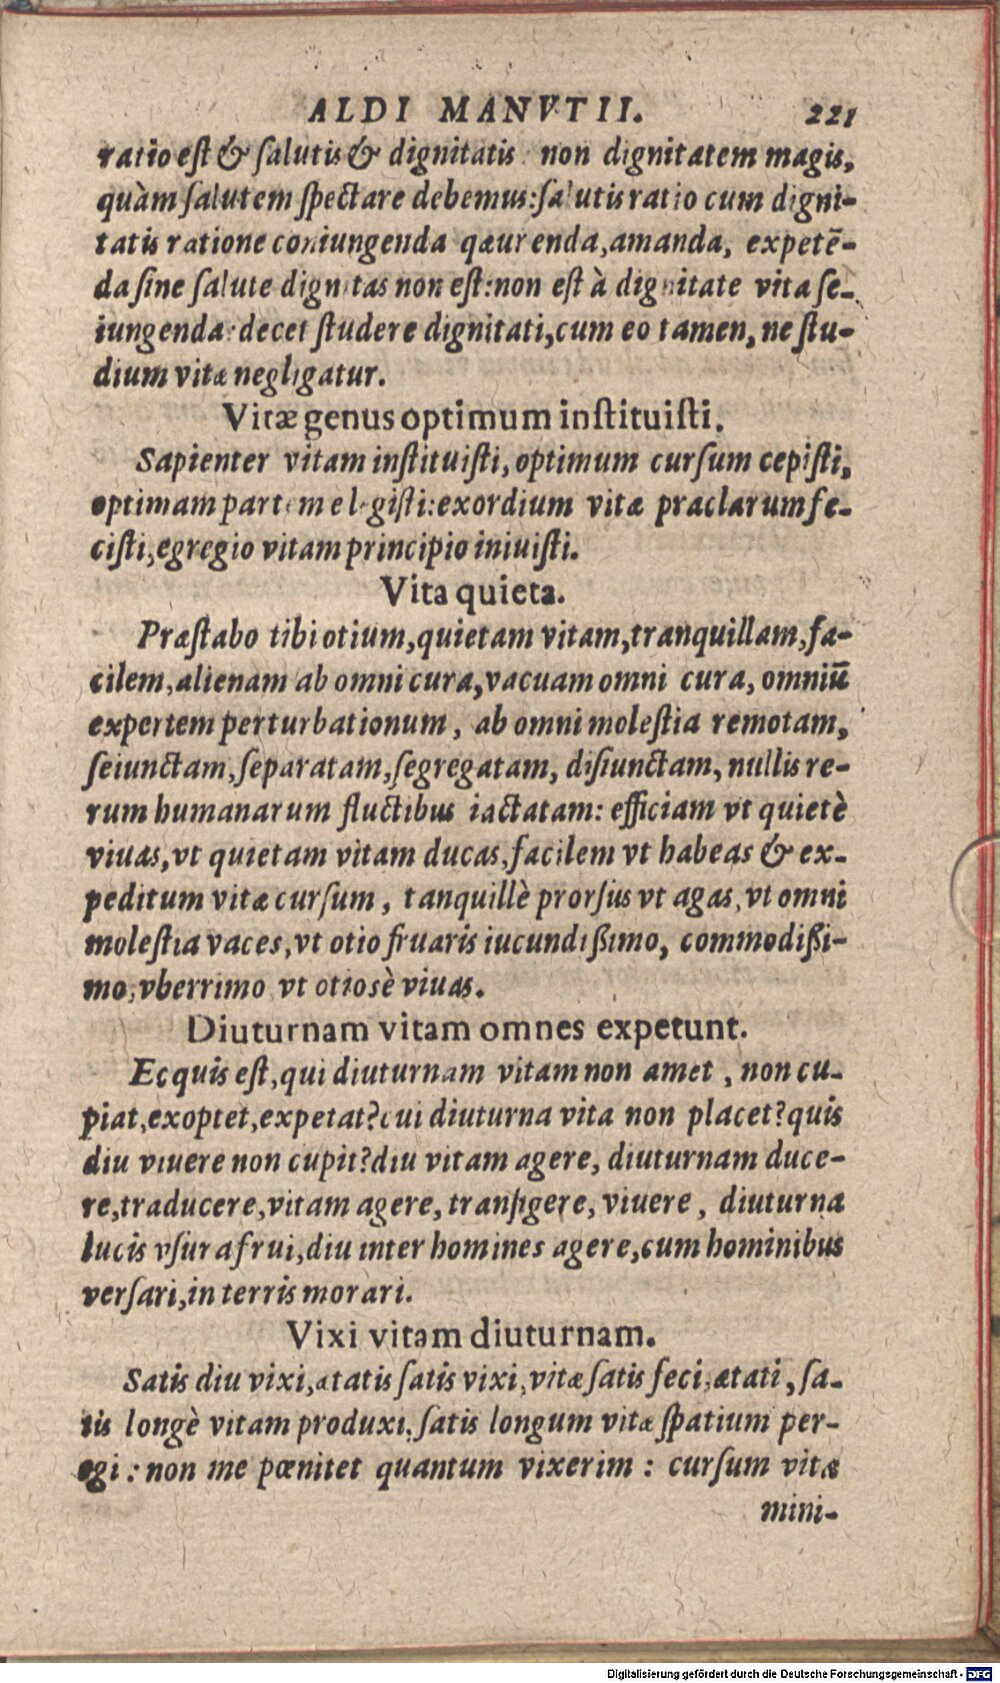 ALDI MANVTII. 221
ratio est & salutis & dignitatis: non dignitatem magis,
quàm salutem spectare debemus: salutis ratio cum digni-
tatis ratione coniungenda quærenda, amanda, expetē-
da sine salute dignitas non est: non est à dignitate vita se-
iungenda: decet studere dignitati, cum eo tamen, ne stu-
dium vitæ negligatur.
Vitæ genus optimum instituisti.
Sapienter vitam instituisti, optimum cursum cepisti,
optimam partem elegisti: exordium vitæ præclarum fe-
cisti, egregio vitam principio iniuisti.
Vita quieta.
Præstabo tibi otium, quietam vitam, tranquillam, fa-
cilem, alienam ab omni cura, vacuam omni cura, omniū
expertem perturbationum, ab omni molestia remotam,
seiunctam, separatam, segregatam, disiunctam, nullis re-
rum humanarum fluctibus iactatam: efficiam vt quietè
viuas, vt quietam vitam ducas, facilem vt habeas & ex-
peditum vitæ cursum, tanquillè prorsus vt agas, vt omni
molestia vaces, vt otio fruaris iucundissimo, commodissi-
mo, vberrimo vt otiosè viuas.
Diuturnam vitam omnes expetunt.
Ecquis est, qui diuturnam vitam non amet, non cu-
piat, exoptet, expetat? cui diuturna vita non placet? quis
diu viuere non cupit? diu vitam agere, diuturnam duce-
re, traducere, vitam agere, transigere, viuere, diuturna
lucis vsura frui, diu inter homines agere, cum hominibus
versari, in terris morari.
Vixi vitam diuturnam.
Satis diu vixi, ætatis satis vixi, vitæ satis feci, ætati, sa-
tis longè vitam produxi, satis longum vitæ spatium per-
egi: non me pœnitet quantum vixerim: cursum vitæ
mini-
Digitalisierung gefördert durch die Deutsche Forschungsgemeinschaft - DFG